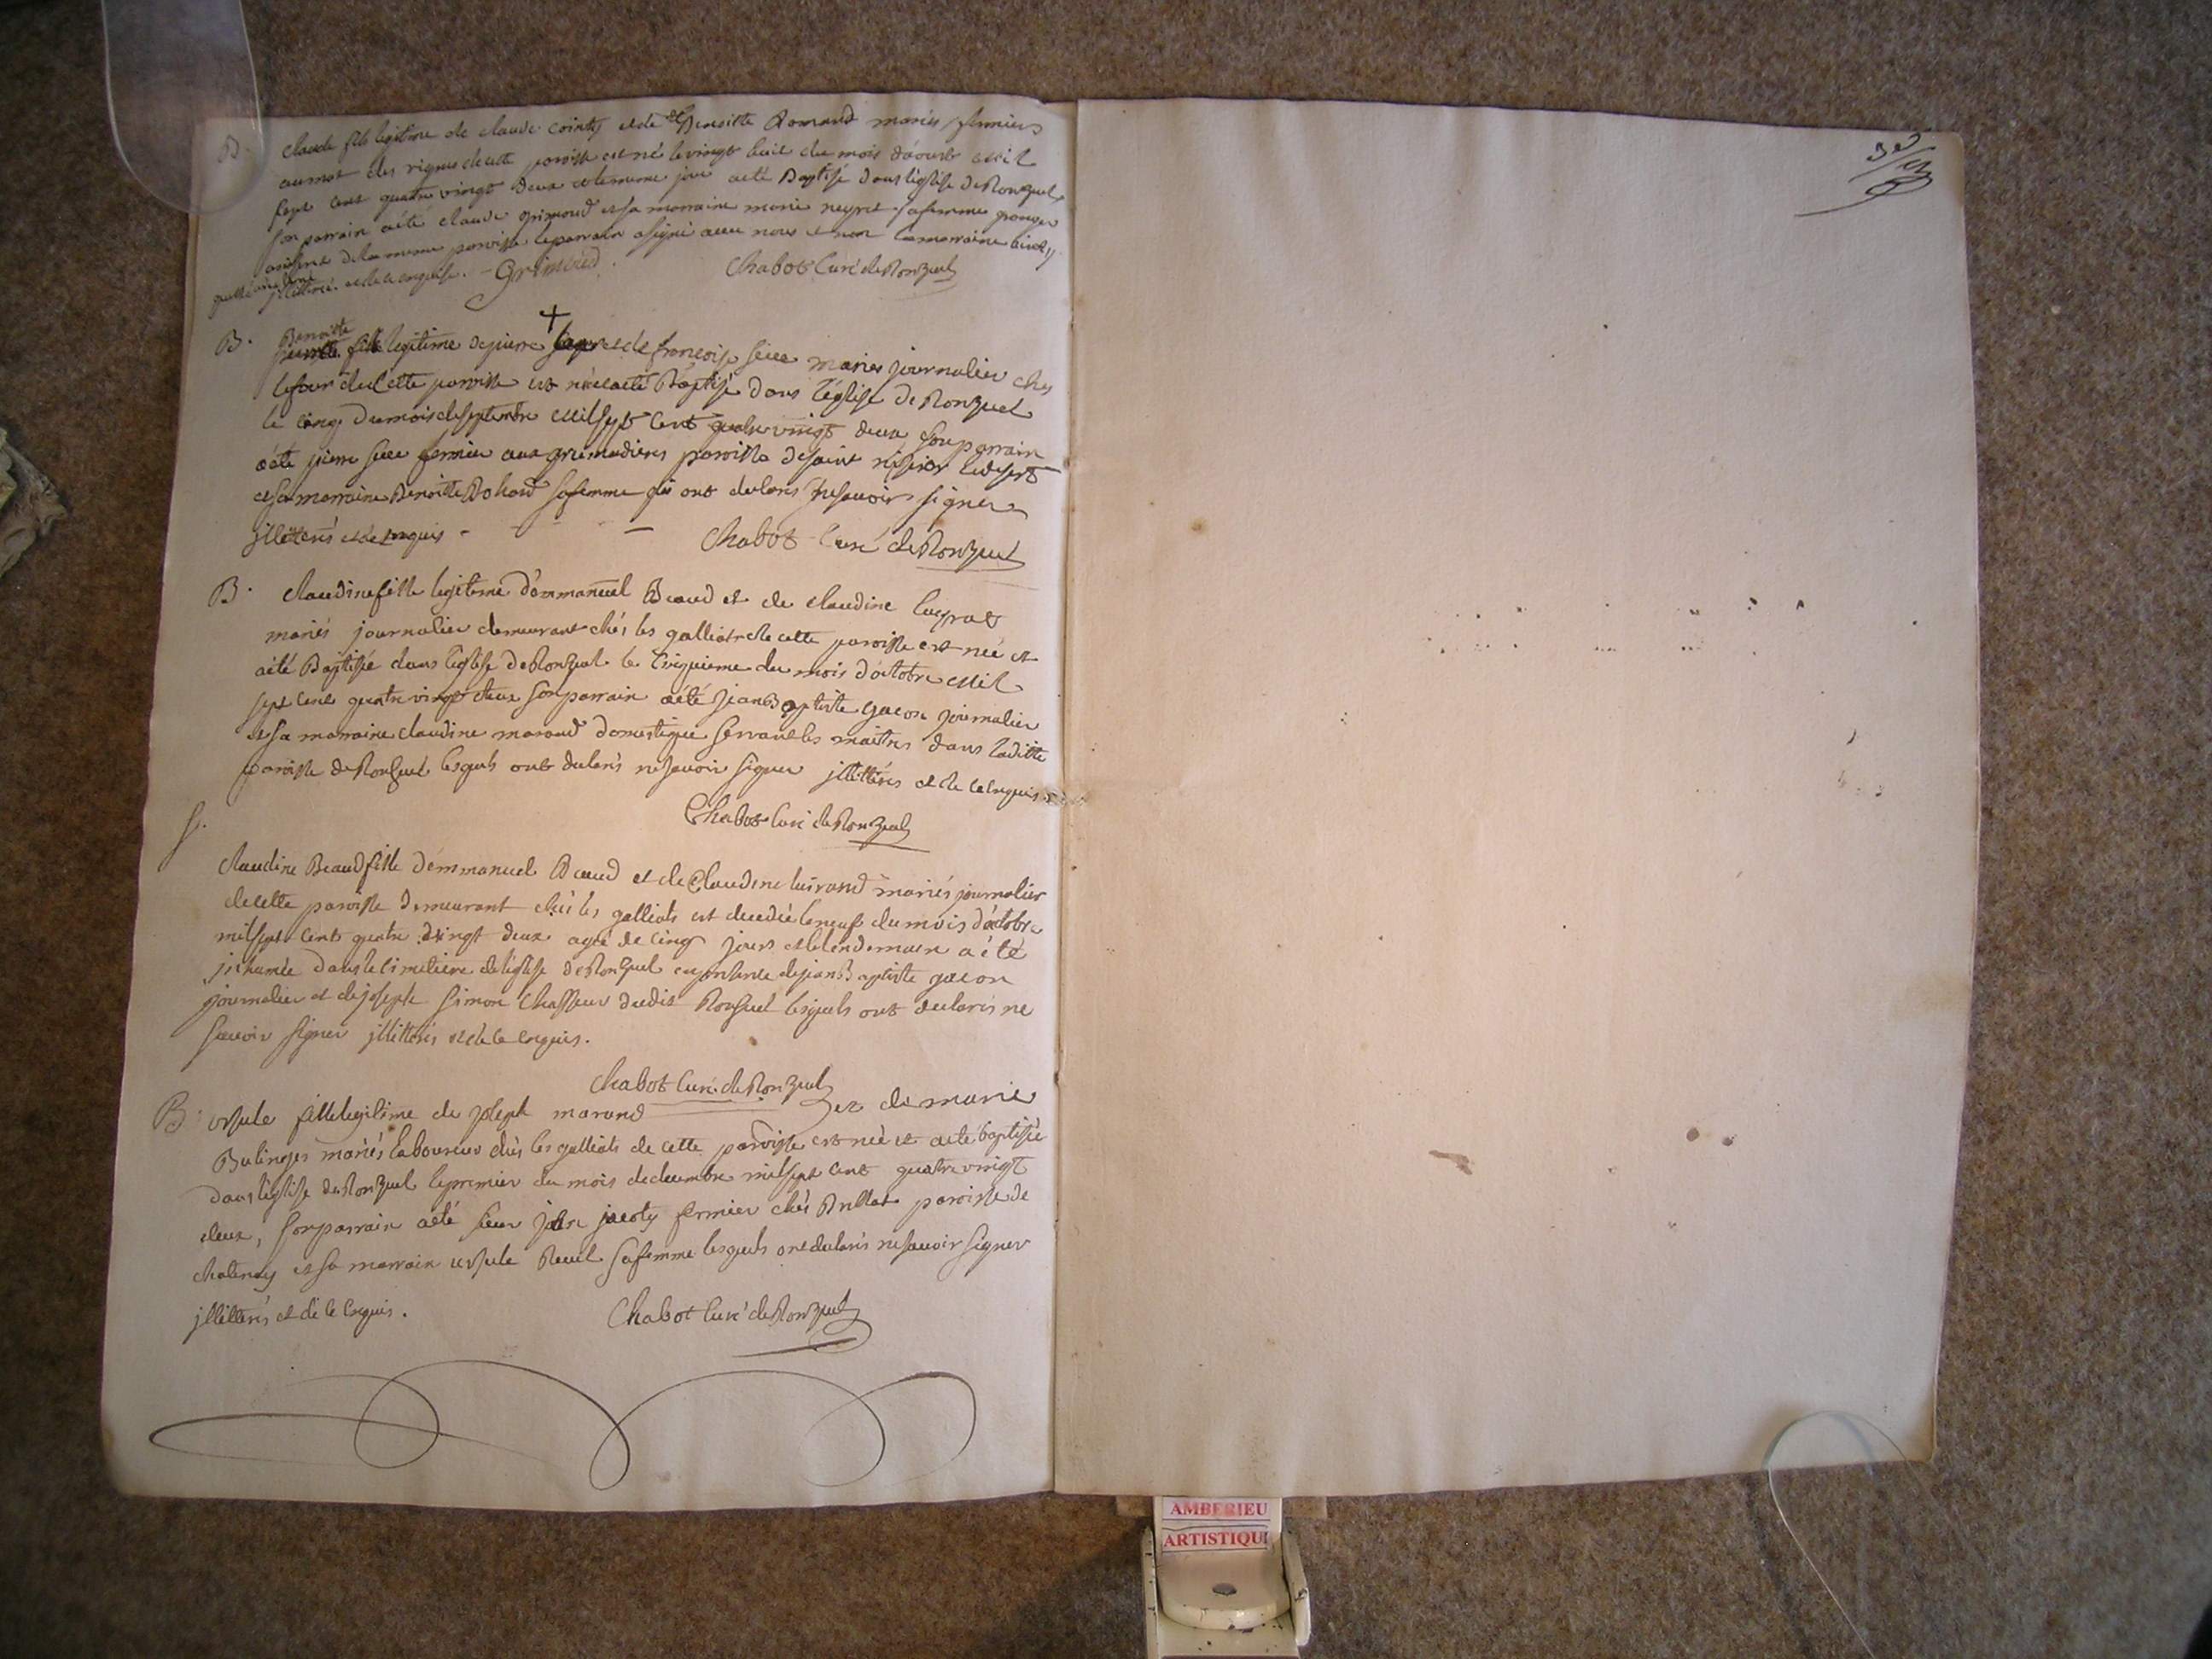 B. claude fils legitime de claude cointy et de Benoitte Romand mariés fermiers
au mas des vignes de cette paroisse est né le vingt huit du mois d'aoust mil
sept cent quatre vingt deux et le meme jour a eté Baptisé dans l'église de Ronzuel
son parrain a eté claude grimoud et sa marraine marie neyret sa femme granger
de la meme paroisse le parrain a signé avec nous et non la marraine
jllitteré et de ce enquise. - Grimoud. Chabot Curé de Ronzuel
B. Benoitte
fille legitime de pierre et de françoise seue mariés journalier chés
le four de Cette paroisse est née et a eté Baptisé dans l'église de Ronzuel
le cinq du mois de septembre mil sept cent quatre vingt deux son parrain
a eté pierre seue fermier aux grimaudieres paroisse de saint nisier le desert
et sa marraine Benoitte Bohard sa femme qui ont declaré ne savoir signer
jlletterés et de enquis - - - Chabot Curé de Ronzuel
B. Claudine fille legitime d'emmanuel Beaud et de claudine luyrat
mariés journalier demeurant chés les galliats de cette paroisse est née et
a été Baptisée dans l'église de Ronzuel le cinquieme du mois d'octobre mil
sept cent quatre vingt deux son parrain a été jean Baptiste gacon journalier
et sa marraine claudine marand domestique servant les maitres dans laditte
paroisse de Ronzuel lesquels ont declarés ne savoir signer jllittérés et de ce enquis
Chabot Curé de Ronzuel
S. Claudine Beaud fille d'emmanuel Beaud et de Claudine luirand mariés journalier
de cette paroisse demeurant chés les galliats est decedée le neuf du mois d'octobre
mil sept cent quatre vingt deux agée de cinq jours et le lendemain a été
jnhumée dans le cimetiere de l'église de Ronzuel en presence de jean Baptiste gacon
journalier et de joseph simon chasseur dudit Ronzuel lesquels ont declarés ne
savoir signer jllittérés et de ce enquis.
Chabot Curé de Ronzuel
B. ursule fille legitime de joseph marand et de marie
Bulinges mariés laboureur chés les galliats de cette paroisse est née et a eté baptisée
dans l'église de Ronzuel le premier du mois de decembre mil sept cent quatre vingt
deux, son parrain a eté sieur jean jacoty fermier chés Brillat paroisse de
chatenay et sa marrain ursule Reuil sa femme lesquels ont declarés ne savoir signer
jllitterés et de ce enquis. Chabot Curé de Ronzuel
AMBERIEU
ARTISTIQU